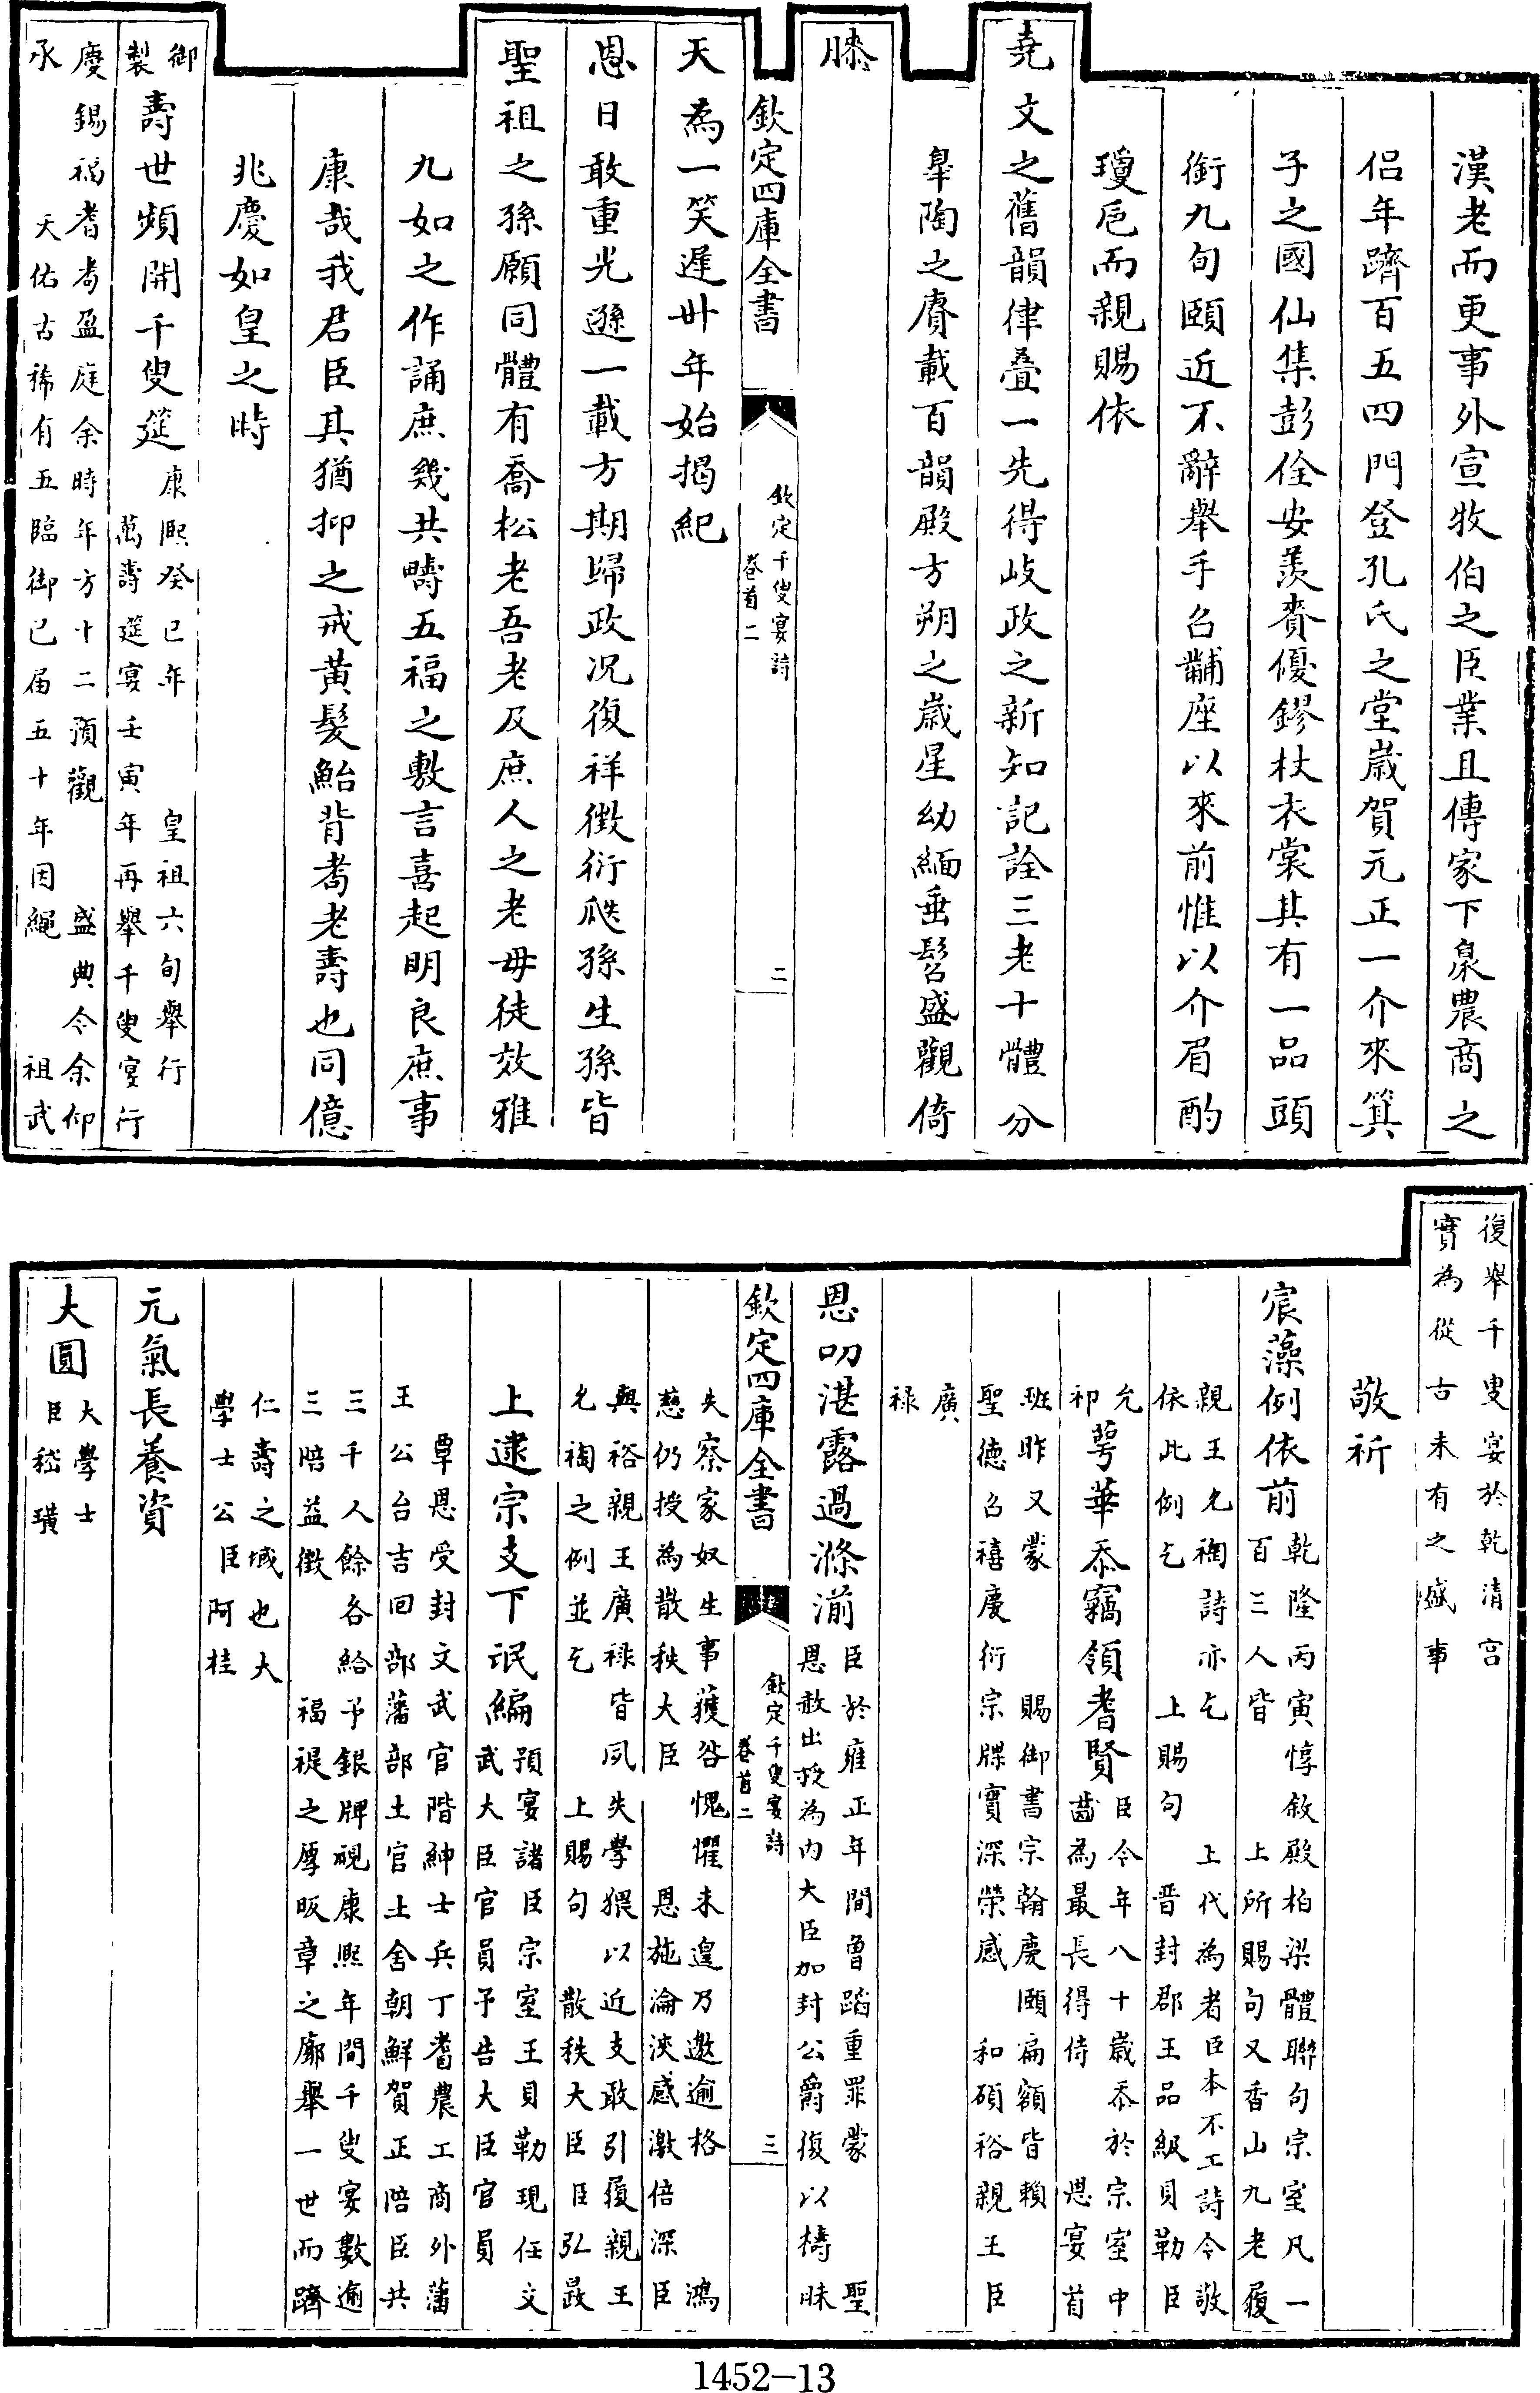 漢老而更事外宣牧伯之臣業且傳家下泉農商之
侣年躋百五四門登孔氏之堂歲賀元正一介來箕
子之國仙集彭佺安羨賚優鏐杖衣裳其有一品頭
銜九旬頤近不辭舉手召黼座以來前惟以介眉酌
瓊巵而親賜依
堯文之舊韻律叠一先得歧政之新知記詮三老十體分
臯陶之賡載百韻殿方朔之歲星幼緬垂髫盛觀倚
膝
欽定四庫全書
欽定千叟宴詩
卷首二
二
天為一笑遲卅年始揭紀
恩日敢重光遜一載方期歸政况復祥徵衍瓞孫生孫皆
聖祖之孫願同體有喬松老吾老及庶人之老毋徒效雅
九如之作誦庶幾共疇五福之敷言喜起明良庶事
康哉我君臣其猶抑之戒黄髮鮐背耈老壽也同億
兆慶如皇之時
御
製壽世頻開千叟筵康熙癸巳年 皇祖六旬舉行
萬壽筵宴壬寅年再舉千叟宴行
慶錫福耆耈盈庭余時年方十二預觀 盛典今余仰
承 天佑古稀有五臨御已届五十年因繩 祖武
復舉千叟宴於乾清宫
實為從古未有之盛事
敬祈
宸藻例依前乾隆丙寅惇敘殿柏梁體聯句宗室凡一
百三人皆 上所賜句又香山九老履
親王允祹詩亦乞 上代為者臣本不工詩今敬
依此例乞 上賜句 晋封郡王品級貝勒臣
允
祁萼華忝竊領耆賢臣今年八十歲忝於宗室中
齒為最長得侍 恩宴首
班昨又蒙 賜御書宗翰慶頤扁額皆賴
聖德召禧慶衍宗牒實深榮感 和碩裕親王臣
廣
禄
恩叨湛露過滌湔臣於雍正年間曾蹈重罪蒙 聖
恩赦出授為内大臣加封公爵復以檮昧
欽定四庫全書
欽定千叟宴詩
卷首二
三
失察家奴生事獲咎愧懼未遑乃邀逾格 鴻
慈仍授為散秩大臣 恩施淪浹感激倍深臣
與裕親王廣禄皆夙失學猥以近支敢引履親王
允祹之例並乞 上賜句 散秩大臣臣弘晸
上逮宗支下氓編預宴諸臣宗室王貝勒現任文
武大臣官員予告大臣官員
覃恩受封文武官階紳士兵丁耆農工商外藩
王公台吉回部藩部土官土舍朝鮮賀正陪臣共
三千人餘各給予銀牌視康熙年間千叟宴數逾
三陪益徵 福禔之厚昄章之廓舉一世而躋
仁壽之域也大
學士公臣阿桂
元氣長養資
大圓大學士
臣嵇璜
1452-13